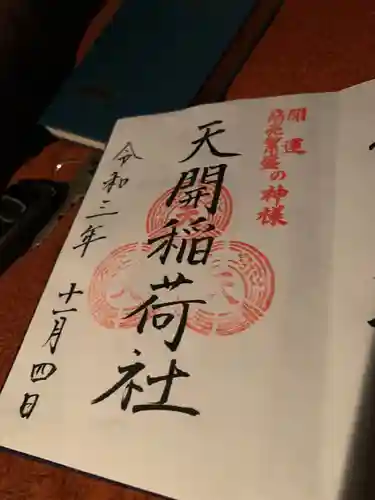 開運
商売繁盛の神様
天開稲荷社
令和三年
十一月四日